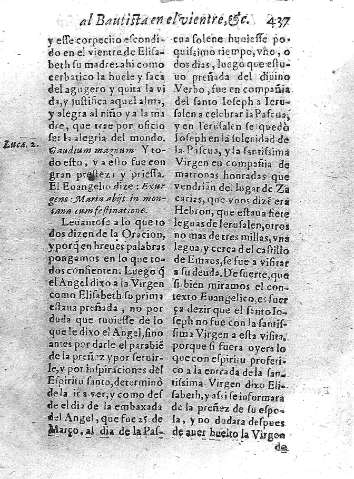 al Bautista en el vientre, &c. 437
y esse corpecito escondi-
do en el vientre de Elisa-
beth su madre: ahi como
cerbatico la huele y saca
del agugero y quita la vi-
da, y justifica aquel alma,
y alegra al niño y a la ma
dre, que trae por oficio
ser la alegria del mundo.
Luca. 2.
Gaudium magnum. Y to-
do esto, y a esso fue con
gran presteza y priessa.
El Euangelio dize: Exur-
gens Maria abijt in mon-
tana cum festinatione.
Leuantose a lo que to
dos dizen de la Oracion,
y porq̃ en breues palabras
pongamos en lo que to-
dos consienten. Luego q̃
el Angel dixo a la Virgen
como Elisabeth su prima
estaua preñada, no por
duda que tuuiesse de lo
que le dixo el Angel, sino
antes por darle el parabiẽ
de la preñez y por seruir-
le, y por inspiraciones del
Espiritu santo, determinò
de la ir a ver, y como des
de el dia de la embaxada
del Angel, que fue a 25 de
Março, al dia de la Pas-
cua solene huuiesse po-
quissimo tiempo, vno, o
dos dias, luego que estu-
uo preñada del diuino
Verbo, fue en compañia
del santo Ioseph a Ieru-
salen a celebrar la Pascua,
y en Ierusalen se quedò
Ioseph en la solenidad de
la Pascua, y la santissima
Virgen en compañia de
matronas honradas que
vendrian del lugar de Za
carias, que vnos dizẽ era
Hebron, que estaua siete
leguas de Ierusalen, otros
no mas de tres millas, vna
legua, y cerca del castillo
de Emaus, se fue a visitar
a su deuda. De suerte, que
si bien miramos el con-
texto Euangelico, es fuer
ça dezir que el santo Io-
seph no fue con la santis-
sima Virgen a esta visita,
porque si fuera oyera lo
que con espiritu profeti-
co a la entrada de la san-
tissima Virgen dixo Eli-
sabeth, y assi se informara
de la preñez de su espo-
sa, y no dudara despues
de auer buelto la Virgen
de